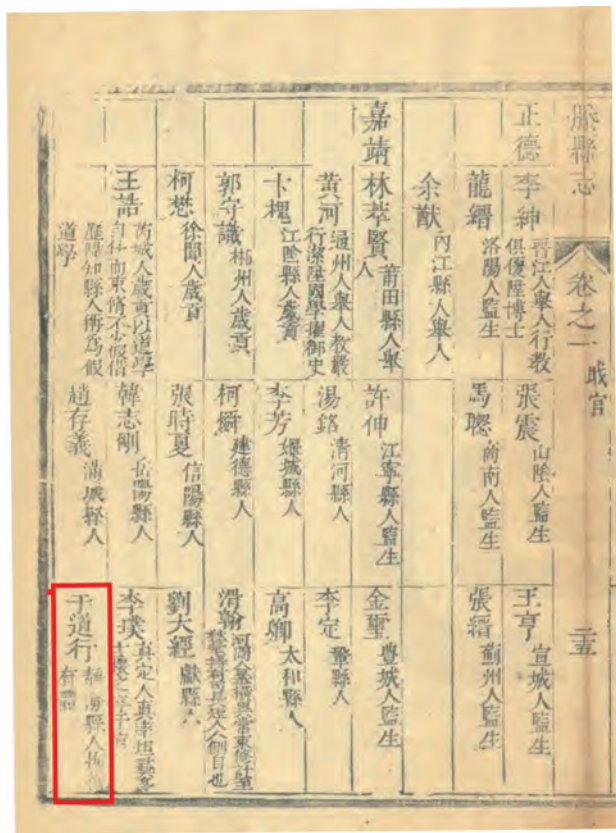 縣志
卷之一
職官
二五
正德
李紳
晉江人舉人行教
俱優陞博士
張震
山陰人監生
王亨
宣城人監生
龍縉
洛陽人監生
馬聰
南人監生
張縉
薊州人監生
余猷
內江縣人舉人
嘉靖
林萃賢
莆田縣人舉
人
許伸
江寧縣人監生
金璽
豐城人監生
黃河
通州人舉人教嚴
行潔陞國學擢御史
湯銘
清河縣人
李定
縣人
卞槐
江陰縣人歲貢
李芳
城縣人
高卿
太和縣人
郭守識
郴州人歲貢
柯
建德縣人
滑翰
柯懋
徐聞人歲貢
張時夏
信陽縣人
劉大經
獻縣人
王誥
芮城人歲貢以道學
自任而束脩不少假借
歷陞知縣人術為假
道學
韓志剛
岳陽縣人
李璞
真定人真率坦
趙存義
蒲城縣人
于道行
縣人